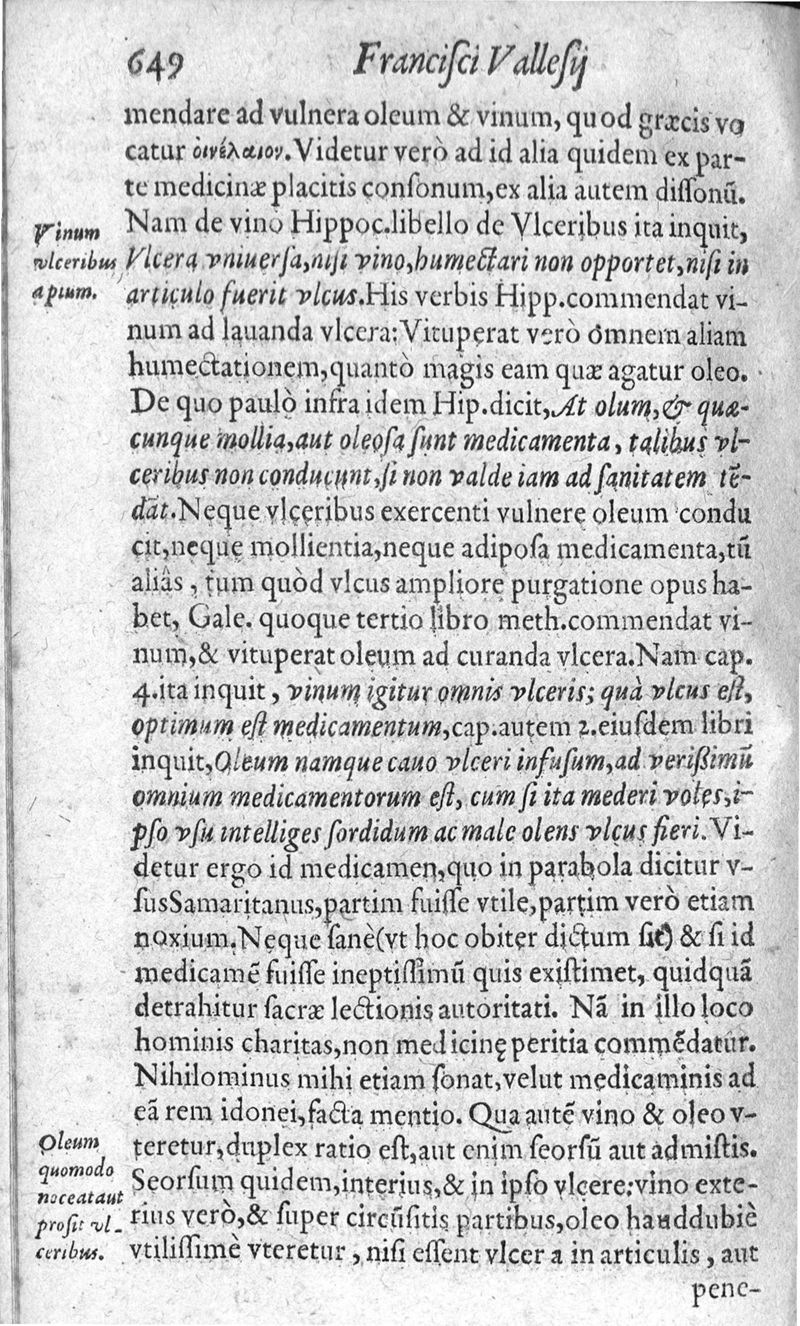 649 Franciſci Valleſij
mendare ad vulnera oleum & vinum, quod græcis vo
catur ὀινέλαιον. Videtur verò ad id alia quidem ex par-
te medicinæ placitis conſonum, ex alia autem diſſonũ.
Nam de vino Hippoc. libello de Vlceribus ita inquit,
Vlcera vniuerſa, niſi vino, humectari non opportet, niſi in
articulo fuerit vlcus. His verbis Hipp. commendat vi-
num ad lauanda vlcera: Vituperat verò omnem aliam
humectationem, quantò magis eam quæ agatur oleo.
De quo paulò infra idem Hip. dicit, At olum, & quæ-
cunque mollia, aut oleoſa ſunt medicamenta, talibus vl-
ceribus non conducunt, ſi non valde iam ad ſanitatem tẽ-
dãt. Neque vlceribus exercenti vulnere oleum condu
cit, neque mollientia, neque adipoſa medicamenta, tũ
aliâs, tum quòd vlcus ampliore purgatione opus ha-
bet, Gale. quoque tertio libro meth. commendat vi-
num, & vituperat oleum ad curanda vlcera. Nam cap.
4. ita inquit, vinum igitur omnis vlceris; quà vlcus eſt,
optimum eſt medicamentum, cap. autem 2. eiuſdem libri
inquit, Oleum namque cauo vlceri infuſum, ad veriſsimũ
omnium medicamentorum eſt, cum ſi ita mederi voles, i-
pſo vſu intelliges ſordidum ac male olens vlcus fieri. Vi-
detur ergo id medicamen, quo in parabola dicitur v-
ſus Samaritanus, partim fuiſſe vtile, partim verò etiam
noxium. Neque ſanè (vt hoc obiter dictum ſit) & ſi id
medicamẽ fuiſſe ineptiſſimũ quis exiſtimet, quidquã
detrahitur ſacræ lectionis autoritati. Nã in illo loco
hominis charitas, non medicinę peritia commẽdatur.
Nihilominus mihi etiam ſonat, velut medicaminis ad
eã rem idonei, facta mentio. Qua autẽ vino & oleo v-
teretur, duplex ratio eſt, aut enim ſeorſũ aut admiſtis.
Seorſum quidem, interius, & in ipſo vlcere: vino exte-
rius verò, & ſuper circũſitis partibus, oleo hauddubiè
vtiliſſimè vteretur, niſi eſſent vlcer a in articulis, aut
pene-
Vinum
vlceribus
aptum.
Oleum
quomodo
noceat aut
proſit vl-
ceribus.